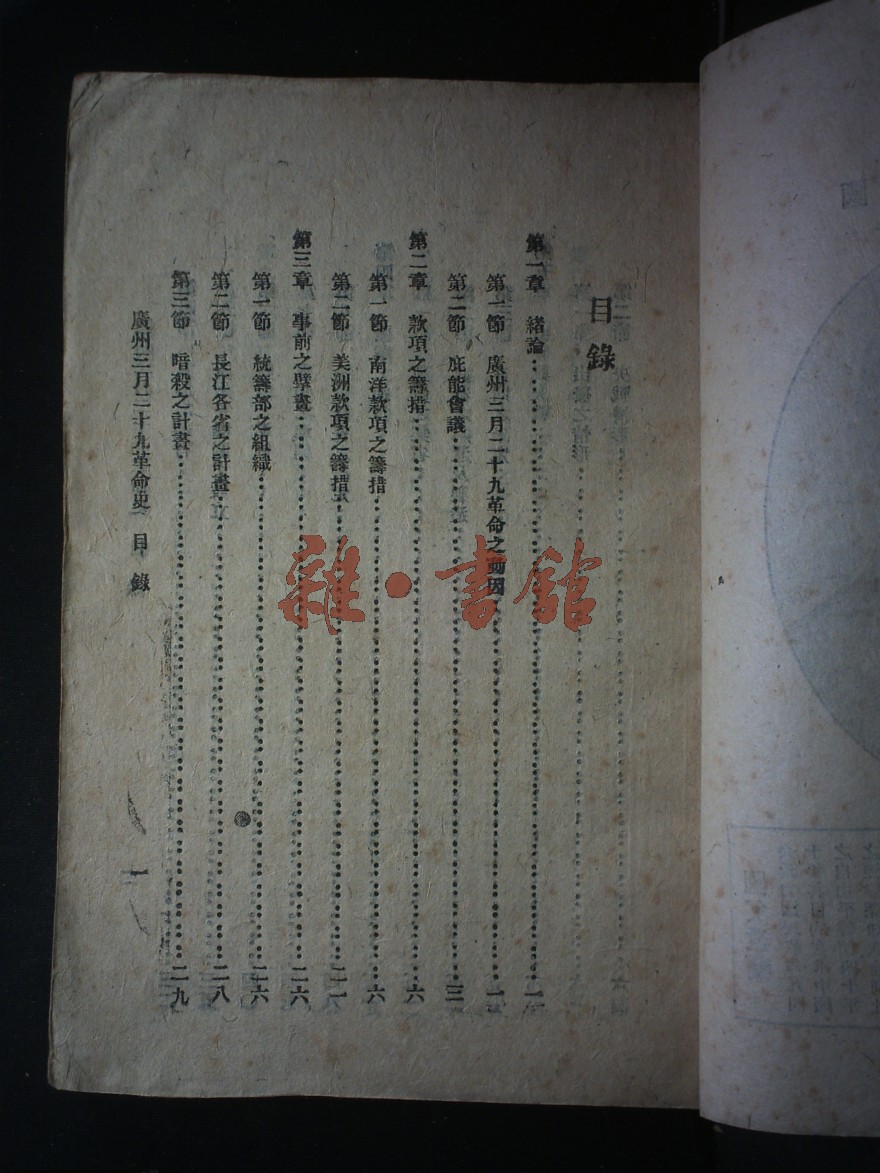 目錄
第一章 緒論 一
第一節 廣州三月二十九革命之動因 一
第二節 庇能會議 三
第二章 款項之籌措 六
第一節 南洋款項之籌措 六
第二節 美洲款項之籌措 二一
第三章 事前之擘畫 二六
第一節 統籌部之組織 二六
第二節 長江各省之計畫 二八
第三節 暗殺之計畫 二九
廣州三月二十九革命史 目錄
一
雜·書館